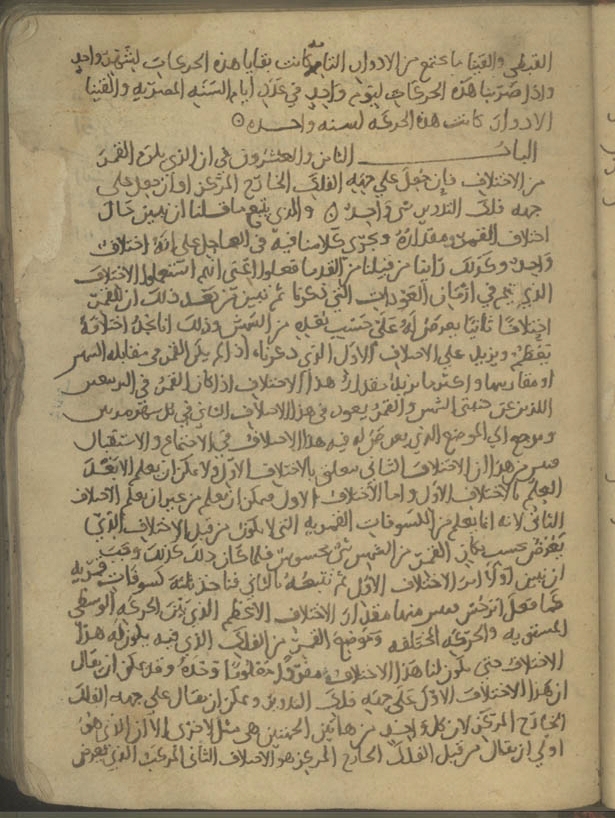 القبطي والقينا ما يجتمع من الادوار التامه كانت بقايا هذه الحركات لشهر واحد
واذا ضربنا هذه الحركات ليوم واحد في عدد ايام السنه المصريه والقينا
الادوار كانت هذه الحركه لسنه واحده
الباب الثامن والعشرون في ان الذي يلزم القمر
من الاختلاف فان جعل علي جهه الفلك الخارج المركز او ان جعل علي
جهه فلك التدوير شي واحد والذي يتبع ما قلنا ان نبين حال
اختلاف القمر ومقداره ونجري كلامنا فيه في العاجل علي انه اختلاف
واحد وكذلك راينا من قبلنا من القدما فعلوا اعني انهم استعملوا الاختلاف
الذي يتم في ازمان العودات التي ذكرنا ثم نبين من بعد ذلك ان للقمر
اختلافا ثانيا يعرض له علي حسب بعده من الشمس وذلك انا نجد اختلافه
يعظم ويزيد علي الاختلاف الاول الذي ذكرناه اذا لم يكن القمر في مقابله الشمس
او مقاربتها واكثر ما يزيد مقدار هذا الاختلاف اذا كان القمر في التربيعين
اللذين عن جنبتي الشمس والقمر يعود في هذا الاختلاف الثاني في كل شهر مرتين
ويرجع الي الموضع الذي يعرض له فيه هذا الاختلاف في الاجتماع والاستقبال
فبين من هذا ان الاختلاف الثاني متعلق بالاختلاف الاول ولا يمكن ان يعلم الا بعد
العلم بالاختلاف الاول واما الاختلاف الاول فممكن ان يعلم من غير ان يعلم الاختلاف
الثاني لانه انما يعلم من الكسوفات القمريه التي لا يكون من قبل الاختلاف الذي
يعرض بحسب مكان القمر من الشمس شي محسوس فلما كان ذلك كذلك وجب
ان نبين اولا امر الاختلاف الاول ثم نتبعه بالثاني فناخذ ثلثه كسوفات قمريه
كما فعل ابرخس فنبين منها مقدار الاختلاف الاعظم الذي بين الحركه الوسطي
المستويه والحركه المختلفه وموضع القمر من الفلك الذي فيه يكون له هذا
الاختلاف حتي يكون لنا هذا الاختلاف مفردا معلوما وحده وقد يمكن ان يقال
ان هذا الاختلاف الاول علي جهه فلك التدوير ويمكن ان يقال علي جهه الفلك
الخارج المركز لان كل واحد من هاتين الجهتين هي مثل الاخري الا ان الذي هو
اولي ان يقال من قبل الفلك الخارج المركز هو الاختلاف الثاني المركب الذي يعرض